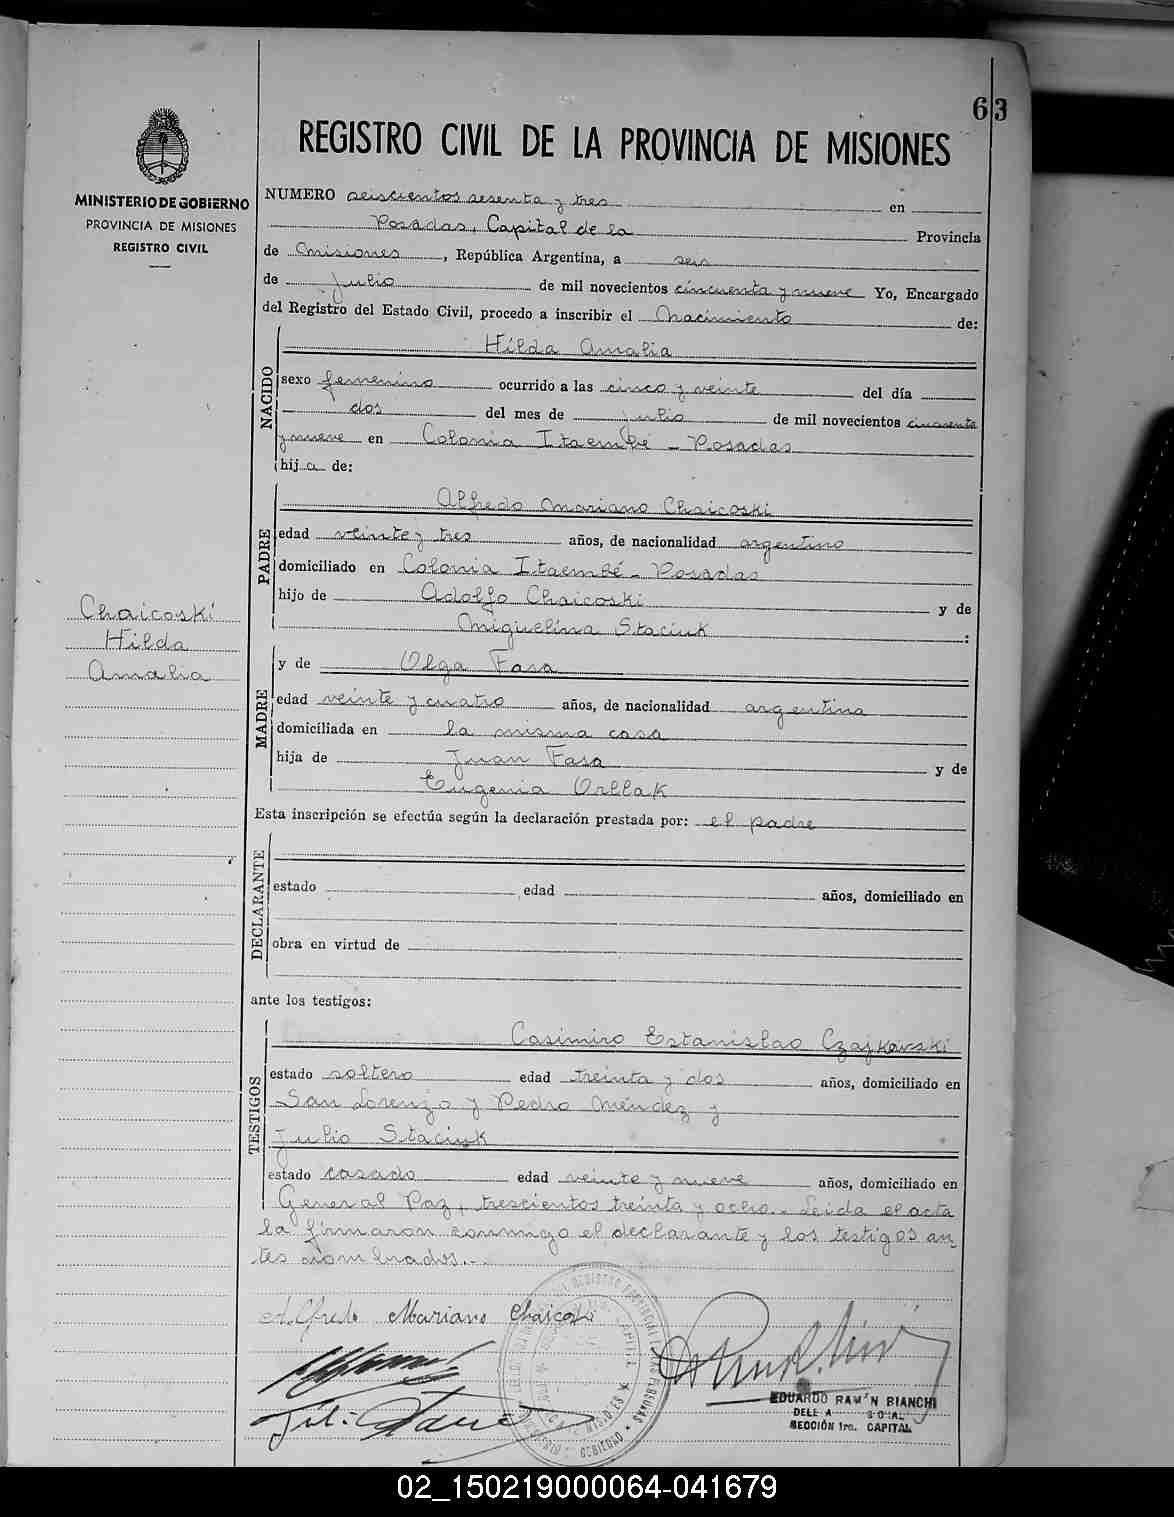 63
REGISTRO CIVIL DE LA PROVINCIA DE MISIONES
MINISTERIO DE GOBIERNO
PROVINCIA DE MISIONES
REGISTRO CIVIL
NUMERO seiscientos sesenta y tres en
Posadas, Capital de la Provincia
de Misiones, República Argentina, a seis
de Julio de mil novecientos cincuenta y nueve Yo, Encargado
del Registro del Estado Civil, procedo a inscribir el Nacimiento de:
NACIDO
Hilda Amalia
sexo femenino ocurrido a las cinco y veinte del día
dos del mes de Julio de mil novecientos cincuenta
y nueve en Colonia Itaembé - Posadas
hija de:
PADRE
Alfredo Mariano Chaicoski
edad veinte y tres años, de nacionalidad argentino
domiciliado en Colonia Itaembé - Posadas
hijo de Adolfo Chaicoski y de
Miguelina Staciuk :
Chaicoski
Hilda
Amalia
MADRE
y de Olga Fasa
edad veinte y cuatro años, de nacionalidad argentina
domiciliada en la misma casa
hija de Juan Fasa y de
Eugenia Orllak
Esta inscripción se efectúa según la declaración prestada por: el padre
DECLARANTE
estado edad años, domiciliado en
obra en virtud de
ante los testigos:
TESTIGOS
Casimiro Estanislao Czajkowski
estado soltero edad treinta y dos años, domiciliado en
San Lorenzo y Pedro Méndez y
Julio Staciuk
estado casado edad veinte y nueve años, domiciliado en
General Paz, trescientos treinta y ocho. Leida el acta
la firmaron conmigo el declarante y los testigos an
tes nombrados.-
Alfredo Mariano Chaicoski
EDUARDO RAMÓN BIANCHI
SECCIÓN 1ra. CAPITAL
02_150219000064-041679